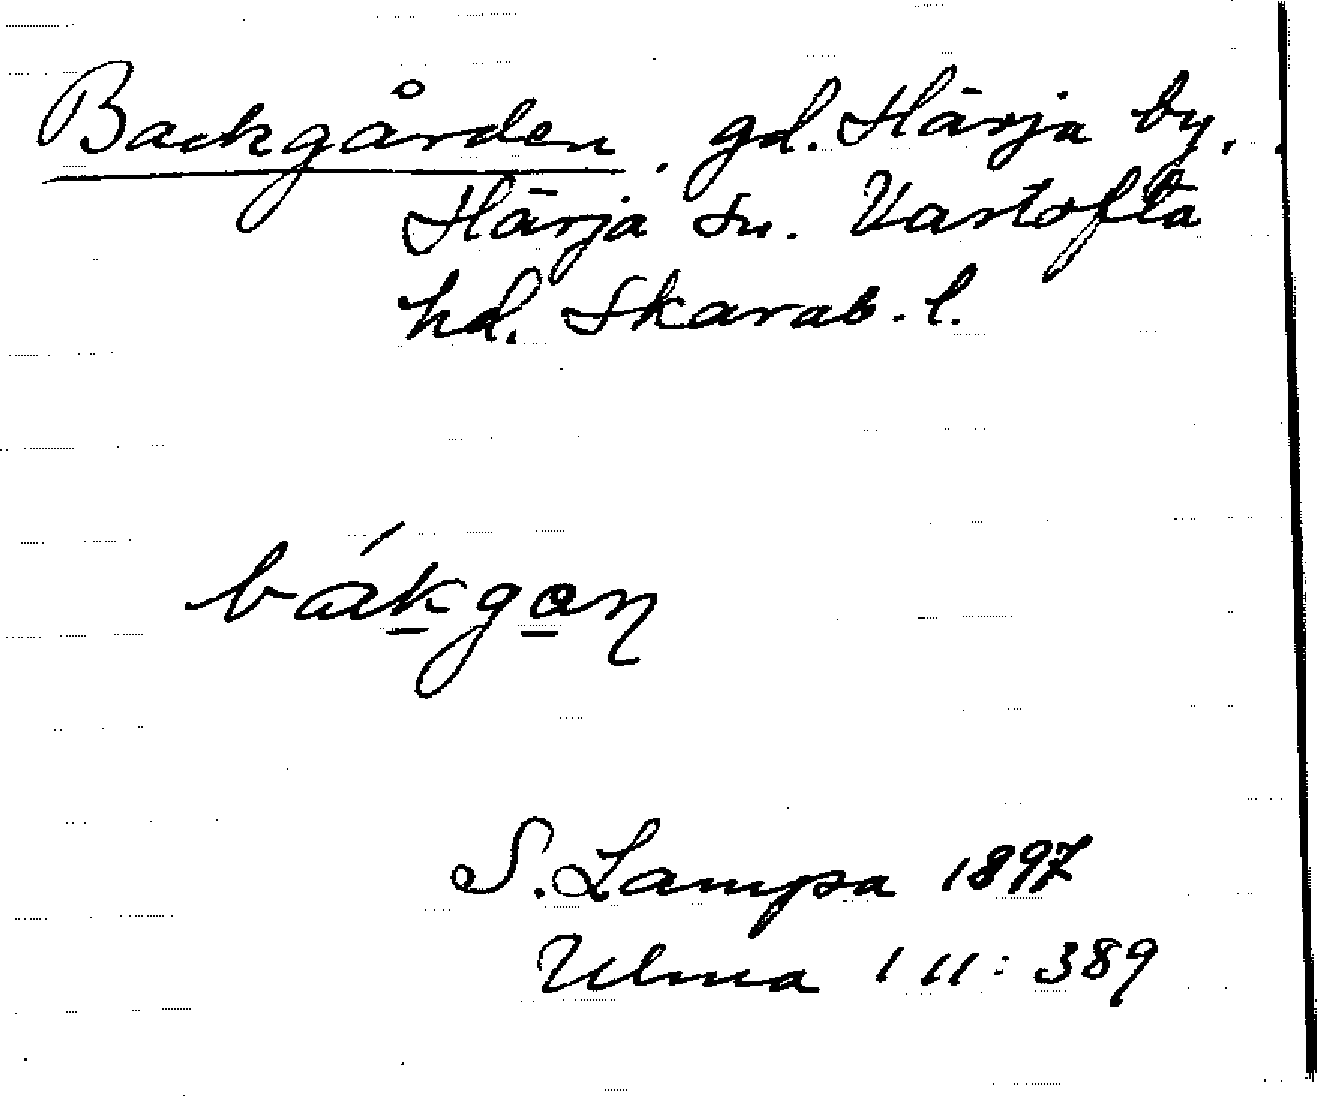 Backgården. gd. Härja by,
Härja sn. Vartofta
hd. Skarab. l.
bákgaɳ
S. Lampa 1897
Ulma 111: 389